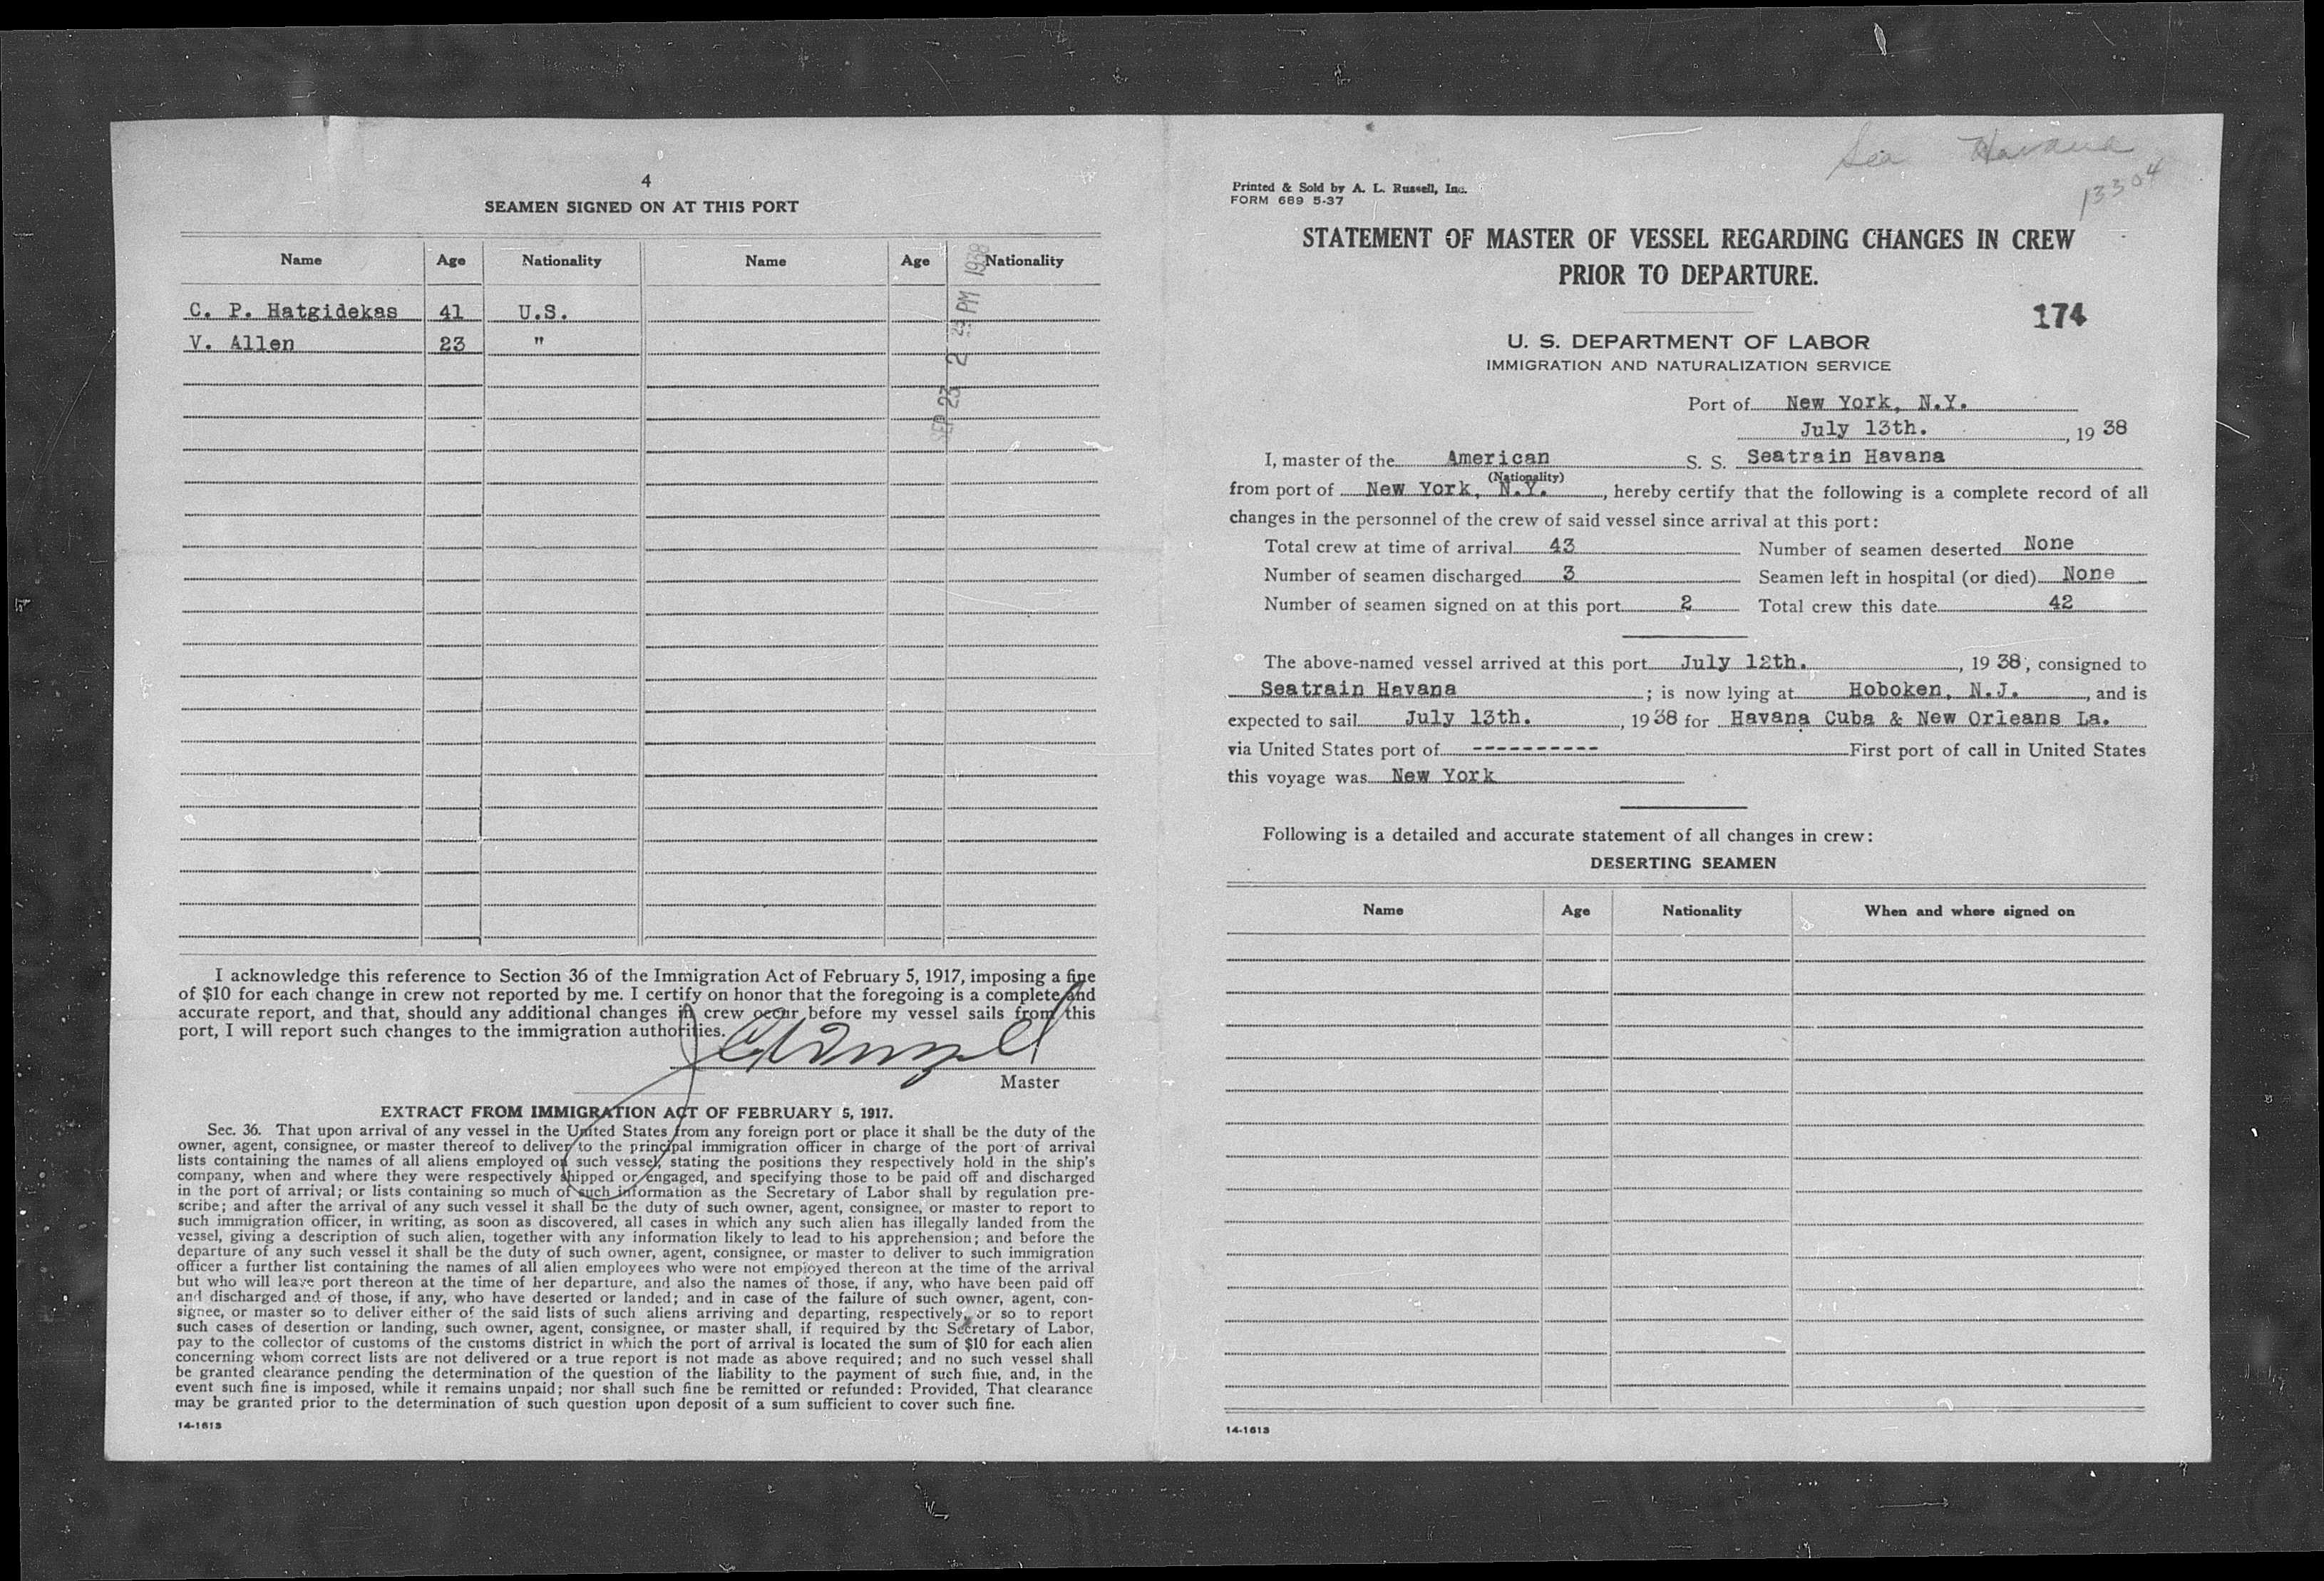 4
SEAMEN SIGNED ON AT THIS PORT
Name Age Nationality Name Age Nationality
C. P. Hatgidekas 41 U.S.
V. Allen 23 "
SEP 23 2 25 PM 1938
I acknowledge this reference to Section 36 of the Immigration Act of February 5, 1917, imposing a fine
of $10 for each change in crew not reported by me. I certify on honor that the foregoing is a complete and
accurate report, and that, should any additional changes in crew occur before my vessel sails from this
port, I will report such changes to the immigration authorities.
Master
EXTRACT FROM IMMIGRATION ACT OF FEBRUARY 5, 1917.
Sec. 36. That upon arrival of any vessel in the United States from any foreign port or place it shall be the duty of the
owner, agent, consignee, or master thereof to deliver to the principal immigration officer in charge of the port of arrival
lists containing the names of all aliens employed on such vessel, stating the positions they respectively hold in the ship's
company, when and where they were respectively shipped or engaged, and specifying those to be paid off and discharged
in the port of arrival; or lists containing so much of such information as the Secretary of Labor shall by regulation pre-
scribe; and after the arrival of any such vessel it shall be the duty of such owner, agent, consignee, or master to report to
such immigration officer, in writing, as soon as discovered, all cases in which any such alien has illegally landed from the
vessel, giving a description of such alien, together with any information likely to lead to his apprehension; and before the
departure of any such vessel it shall be the duty of such owner, agent, consignee, or master to deliver to such immigration
officer a further list containing the names of all alien employees who were not employed thereon at the time of the arrival
but who will leave port thereon at the time of her departure, and also the names of those, if any, who have been paid off
and discharged and of those, if any, who have deserted or landed; and in case of the failure of such owner, agent, con-
signee, or master so to deliver either of the said lists of such aliens arriving and departing, respectively, or so to report
such cases of desertion or landing, such owner, agent, consignee, or master shall, if required by the Secretary of Labor,
pay to the collector of customs of the customs district in which the port of arrival is located the sum of $10 for each alien
concerning whom correct lists are not delivered or a true report is not made as above required; and no such vessel shall
be granted clearance pending the determination of the question of the liability to the payment of such fine, and, in the
event such fine is imposed, while it remains unpaid; nor shall such fine be remitted or refunded: Provided, That clearance
may be granted prior to the determination of such question upon deposit of a sum sufficient to cover such fine.
14-1613
Sea Havana
13304
Printed & Sold by A. L. Russell, Inc.
FORM 689 5-37
STATEMENT OF MASTER OF VESSEL REGARDING CHANGES IN CREW
PRIOR TO DEPARTURE.
174
U. S. DEPARTMENT OF LABOR
IMMIGRATION AND NATURALIZATION SERVICE
Port of New York, N.Y.
July 13th. , 19 38
I, master of the American S. S. Seatrain Havana
(Nationality)
from port of New York, N.Y. , hereby certify that the following is a complete record of all
changes in the personnel of the crew of said vessel since arrival at this port:
Total crew at time of arrival 43 Number of seamen deserted None
Number of seamen discharged 3 Seamen left in hospital (or died) None
Number of seamen signed on at this port 2 Total crew this date 42
The above-named vessel arrived at this port July 12th. , 19 38, consigned to
Seatrain Havana ; is now lying at Hoboken, N.J. , and is
expected to sail July 13th. , 19 38 for Havana Cuba & New Orleans La.
via United States port of ---------- First port of call in United States
this voyage was New York
Following is a detailed and accurate statement of all changes in crew:
DESERTING SEAMEN
Name Age Nationality When and where signed on
14-1613